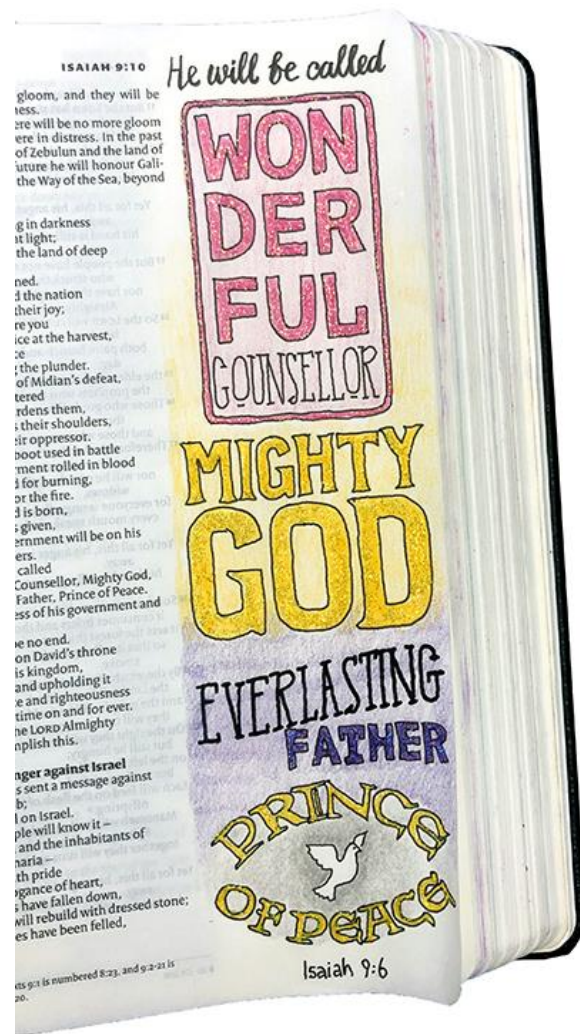 ISAIAH 9:10
gloom, and they will be
ness.
ere will be no more gloom
ere in distress. In the past
of Zebulun and the land of
uture he will honour Gali-
the Way of the Sea, beyond
g in darkness
at light;
the land of deep
ned.
d the nation
their joy;
re you
ice at the harvest,
ce
g the plunder.
of Midian's defeat,
tered
rdens them,
s their shoulders,
eir oppressor.
boot used in battle
rment rolled in blood
d for burning,
or the fire.
d is born,
s given,
ernment will be on his
ers.
called
Counsellor, Mighty God,
Father, Prince of Peace.
ess of his government and
be no end.
on David's throne
is kingdom,
and upholding it
e and righteousness
time on and for ever.
he LORD Almighty
mplish this.
nger against Israel
s sent a message against
b;
l on Israel.
ple will know it –
and the inhabitants of
maria –
th pride
ogance of heart,
s have fallen down,
will rebuild with dressed stone;
es have been felled,
xts 9:1 is numbered 8:23, and 9:2-21 is
20.
He will be called
WON
DER
FUL
COUNSELLOR
MIGHTY
GOD
EVERLASTING
FATHER
PRINCE
OF PEACE
Isaiah 9:6